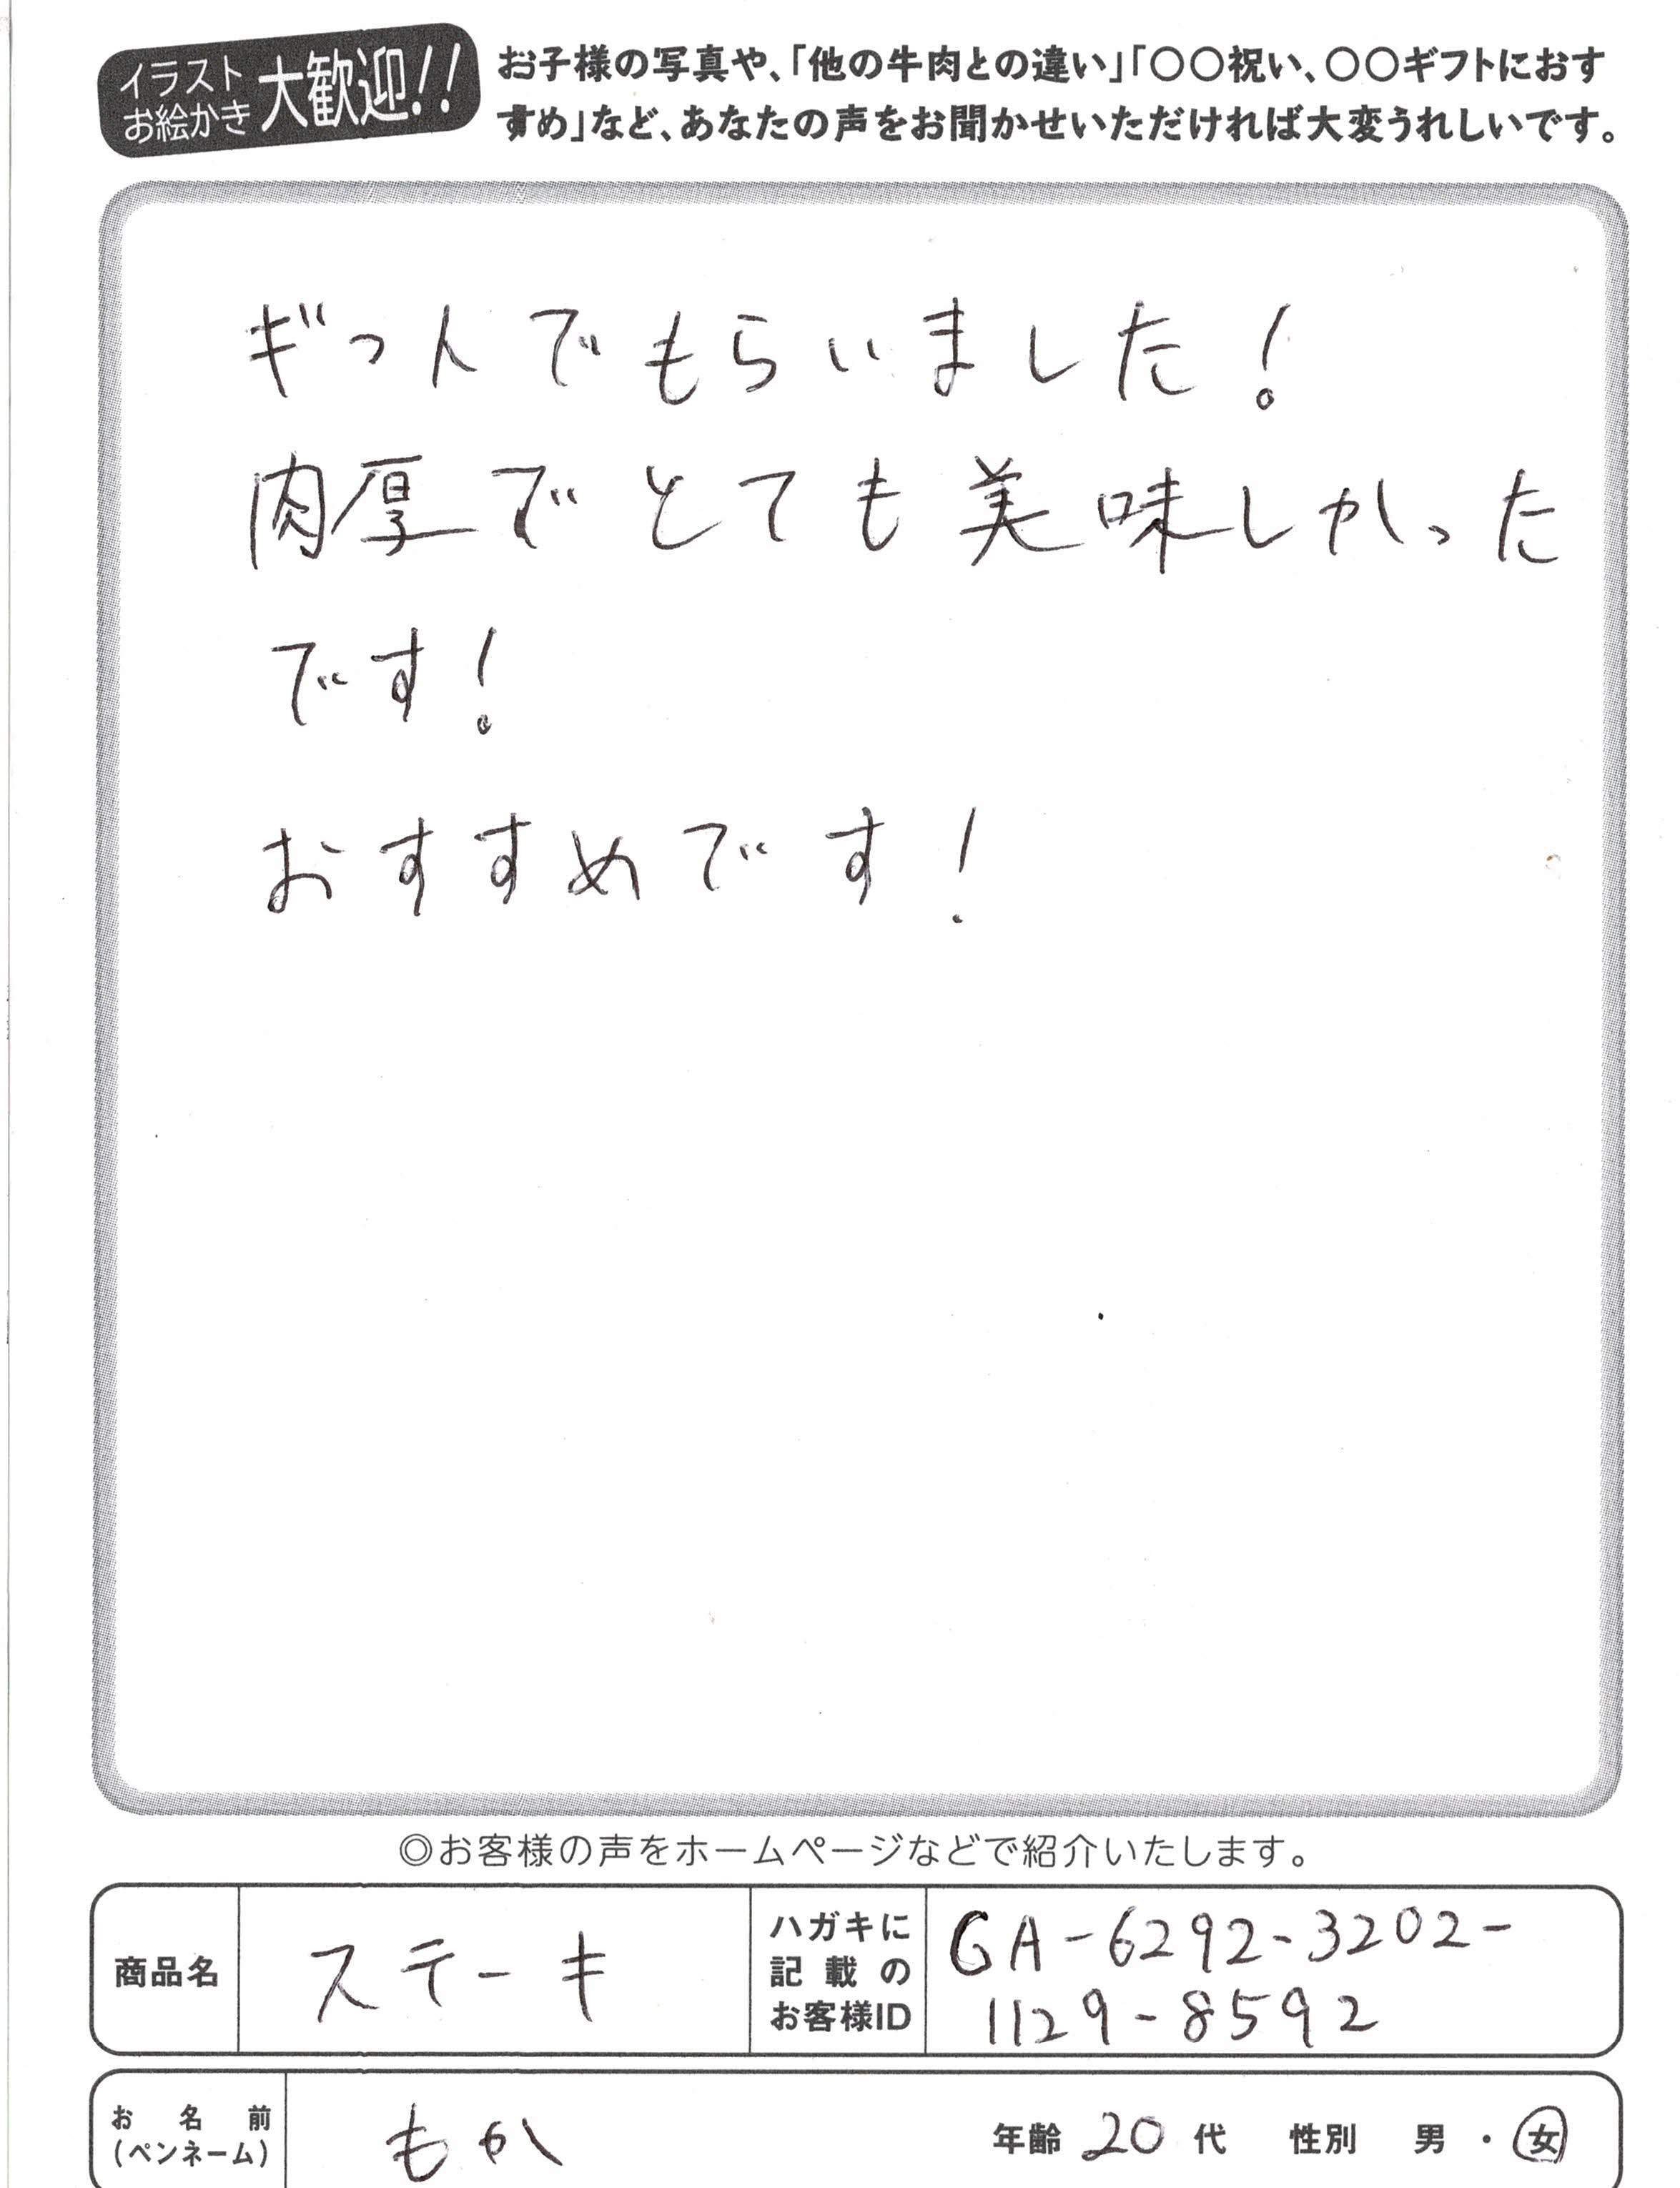 イラスト
お絵かき
大歓迎!!
お子様の写真や、「他の牛肉との違い」「〇〇祝い、〇〇ギフトにおす
すめ」など、あなたの声をお聞かせいただければ大変うれしいです。
ギフトでもらいました!
肉厚でとても美味しかった
です!
おすすめです!
◎お客様の声をホームページなどで紹介いたします。
商品名
ステーキ
ハガキに
記載の
お客様ID
GA-6292-3202-
1129-8592
お名前
(ペンネーム)
もか
年齢 20代 性別 男・女